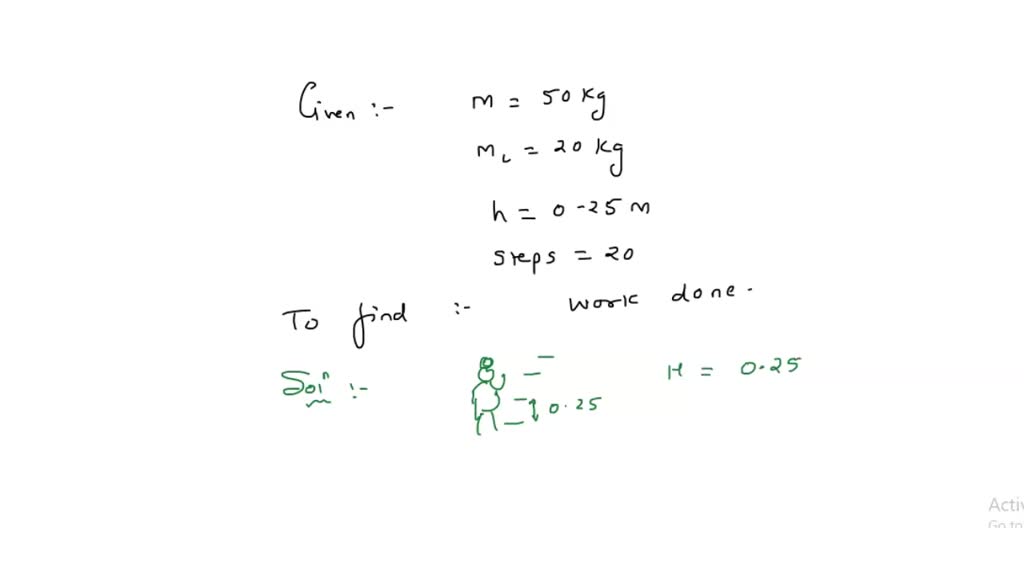 Given :- m = 50 kg
m_L = 20 kg
h = 0.25 m
steps = 20
To find :- work done.
Soln :- H = 0.25
0.25
Activ
Go to